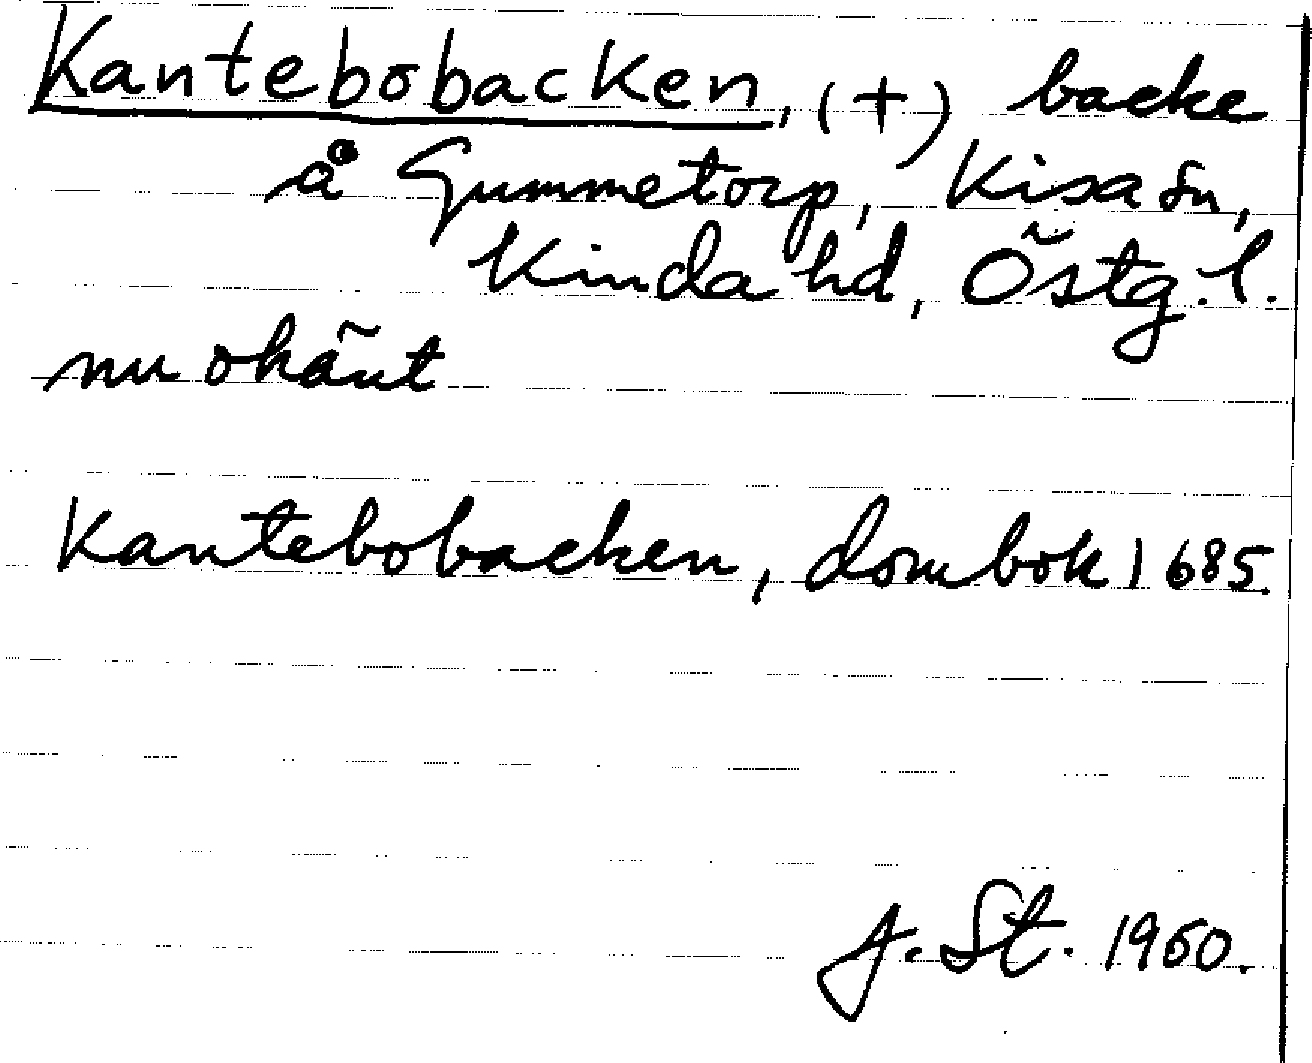 Kantebobacken, (+) backe
å Gummetorp, Kisa sn,
Kinda hd, Östg. l.
nu okänt
Kantebobacken, dombok 1685.
J. St. 1960.